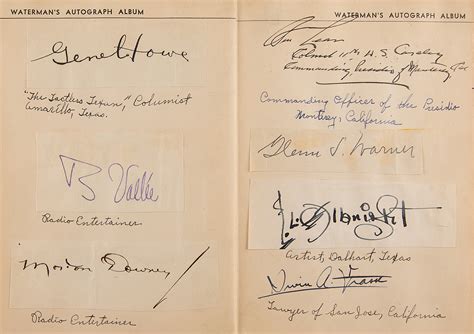 WATERMAN'S AUTOGRAPH ALBUM
Gene Howe
"The Tactless Texan," Columist
Amarillo, Texas.
R Vallee
Radio Entertainer
Morton Downey
Radio Entertainer
WATERMAN'S AUTOGRAPH ALBUM
Colonel 11th U.S. Cavalry
Commanding Presidio of Monterey, Cal
Commanding Officer of the Presidio
Monterey, California
Glenn S. Warner
Artist, Dalhart, Texas
Lawyer of San Jose, California